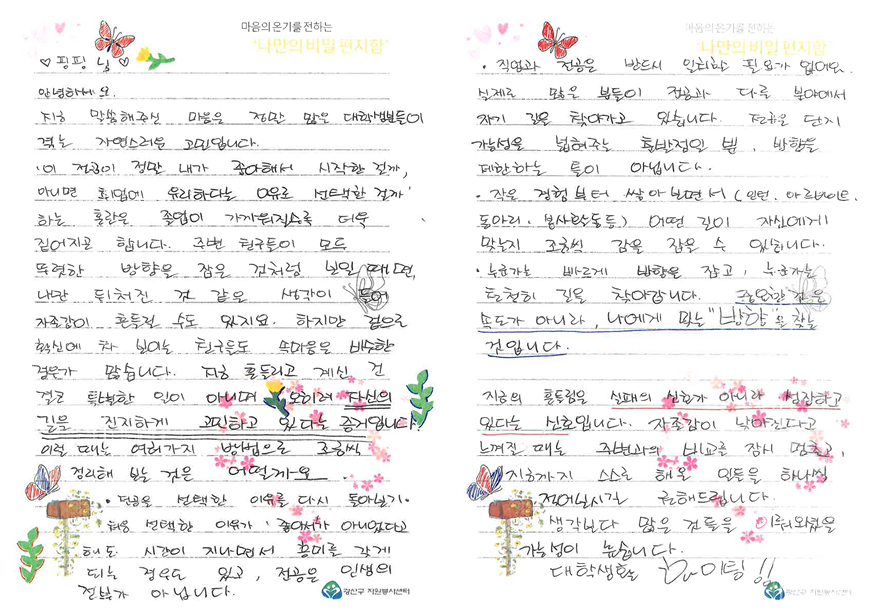 마음의 온기를 전하는
'나만의 비밀 편지함'
♡ 핑핑 님 ♡
안녕하세요.
지금 말씀해주신 마음은 정말 많은 대학생분들이
겪는 자연스러운 고민입니다.
'이 전공이 정말 내가 좋아해서 시작한 걸까,
아니면 취업에 유리하다는 이유로 선택한 걸까'
하는 혼란은 졸업이 가까워질수록 더욱
짙어지곤 합니다. 주변 친구들이 모두
뚜렷한 방향을 잡은 것처럼 보일 때면,
나만 뒤처진 것 같은 생각이 들어
자존감이 흔들릴 수도 있지요. 하지만 겉으로
확신에 차 보이는 친구들도 속마음은 비슷한
경우가 많습니다. 지금 흔들리고 계신 건
결코 특별한 일이 아니며 오히려 자신의
길을 진지하게 고민하고 있다는 증거입니다.
이럴 때는 여러가지 방법으로 조금씩
정리해 보는 것은 어떨까요.
• 전공을 선택한 이유를 다시 돌아보기.
처음 선택한 이유가 '좋아서'가 아니었다고
해도 시간이 지나면서 흥미를 갖게
되는 경우도 있고, 전공은 인생의
전부가 아닙니다.
광산구 자원봉사센터
마음의 온기를 전하는
'나만의 비밀 편지함'
• 직업과 전공은 반드시 일치할 필요가 없어요.
실제로 많은 분들이 전공과 다른 분야에서
자기 길을 찾아가고 있습니다. 전공은 단지
가능성을 넓혀주는 출발점일 뿐, 방향을
제한하는 틀이 아닙니다.
• 작은 경험부터 쌓아보면서 (인턴, 아르바이트,
동아리, 봉사활동등) 어떤 길이 자신에게
맞는지 조금씩 감을 잡을 수 있습니다.
• 누군가는 빠르게 방향을 잡고, 누군가는
천천히 길을 찾아갑니다. 중요한 것은
속도가 아니라, 나에게 맞는 "방향"을 찾는
것입니다.
지금의 흔들림은 실패의 신호가 아니라 성장하고
있다는 신호입니다. 자존감이 낮아진다고
느껴질 때는 주변과의 비교를 잠시 멈추고,
지금까지 스스로 해온 일들을 하나씩
적어보시길 권해드립니다.
생각보다 많은 것들을 이뤄왔을
가능성이 높습니다.
대학생활 화이팅!!
광산구 자원봉사센터